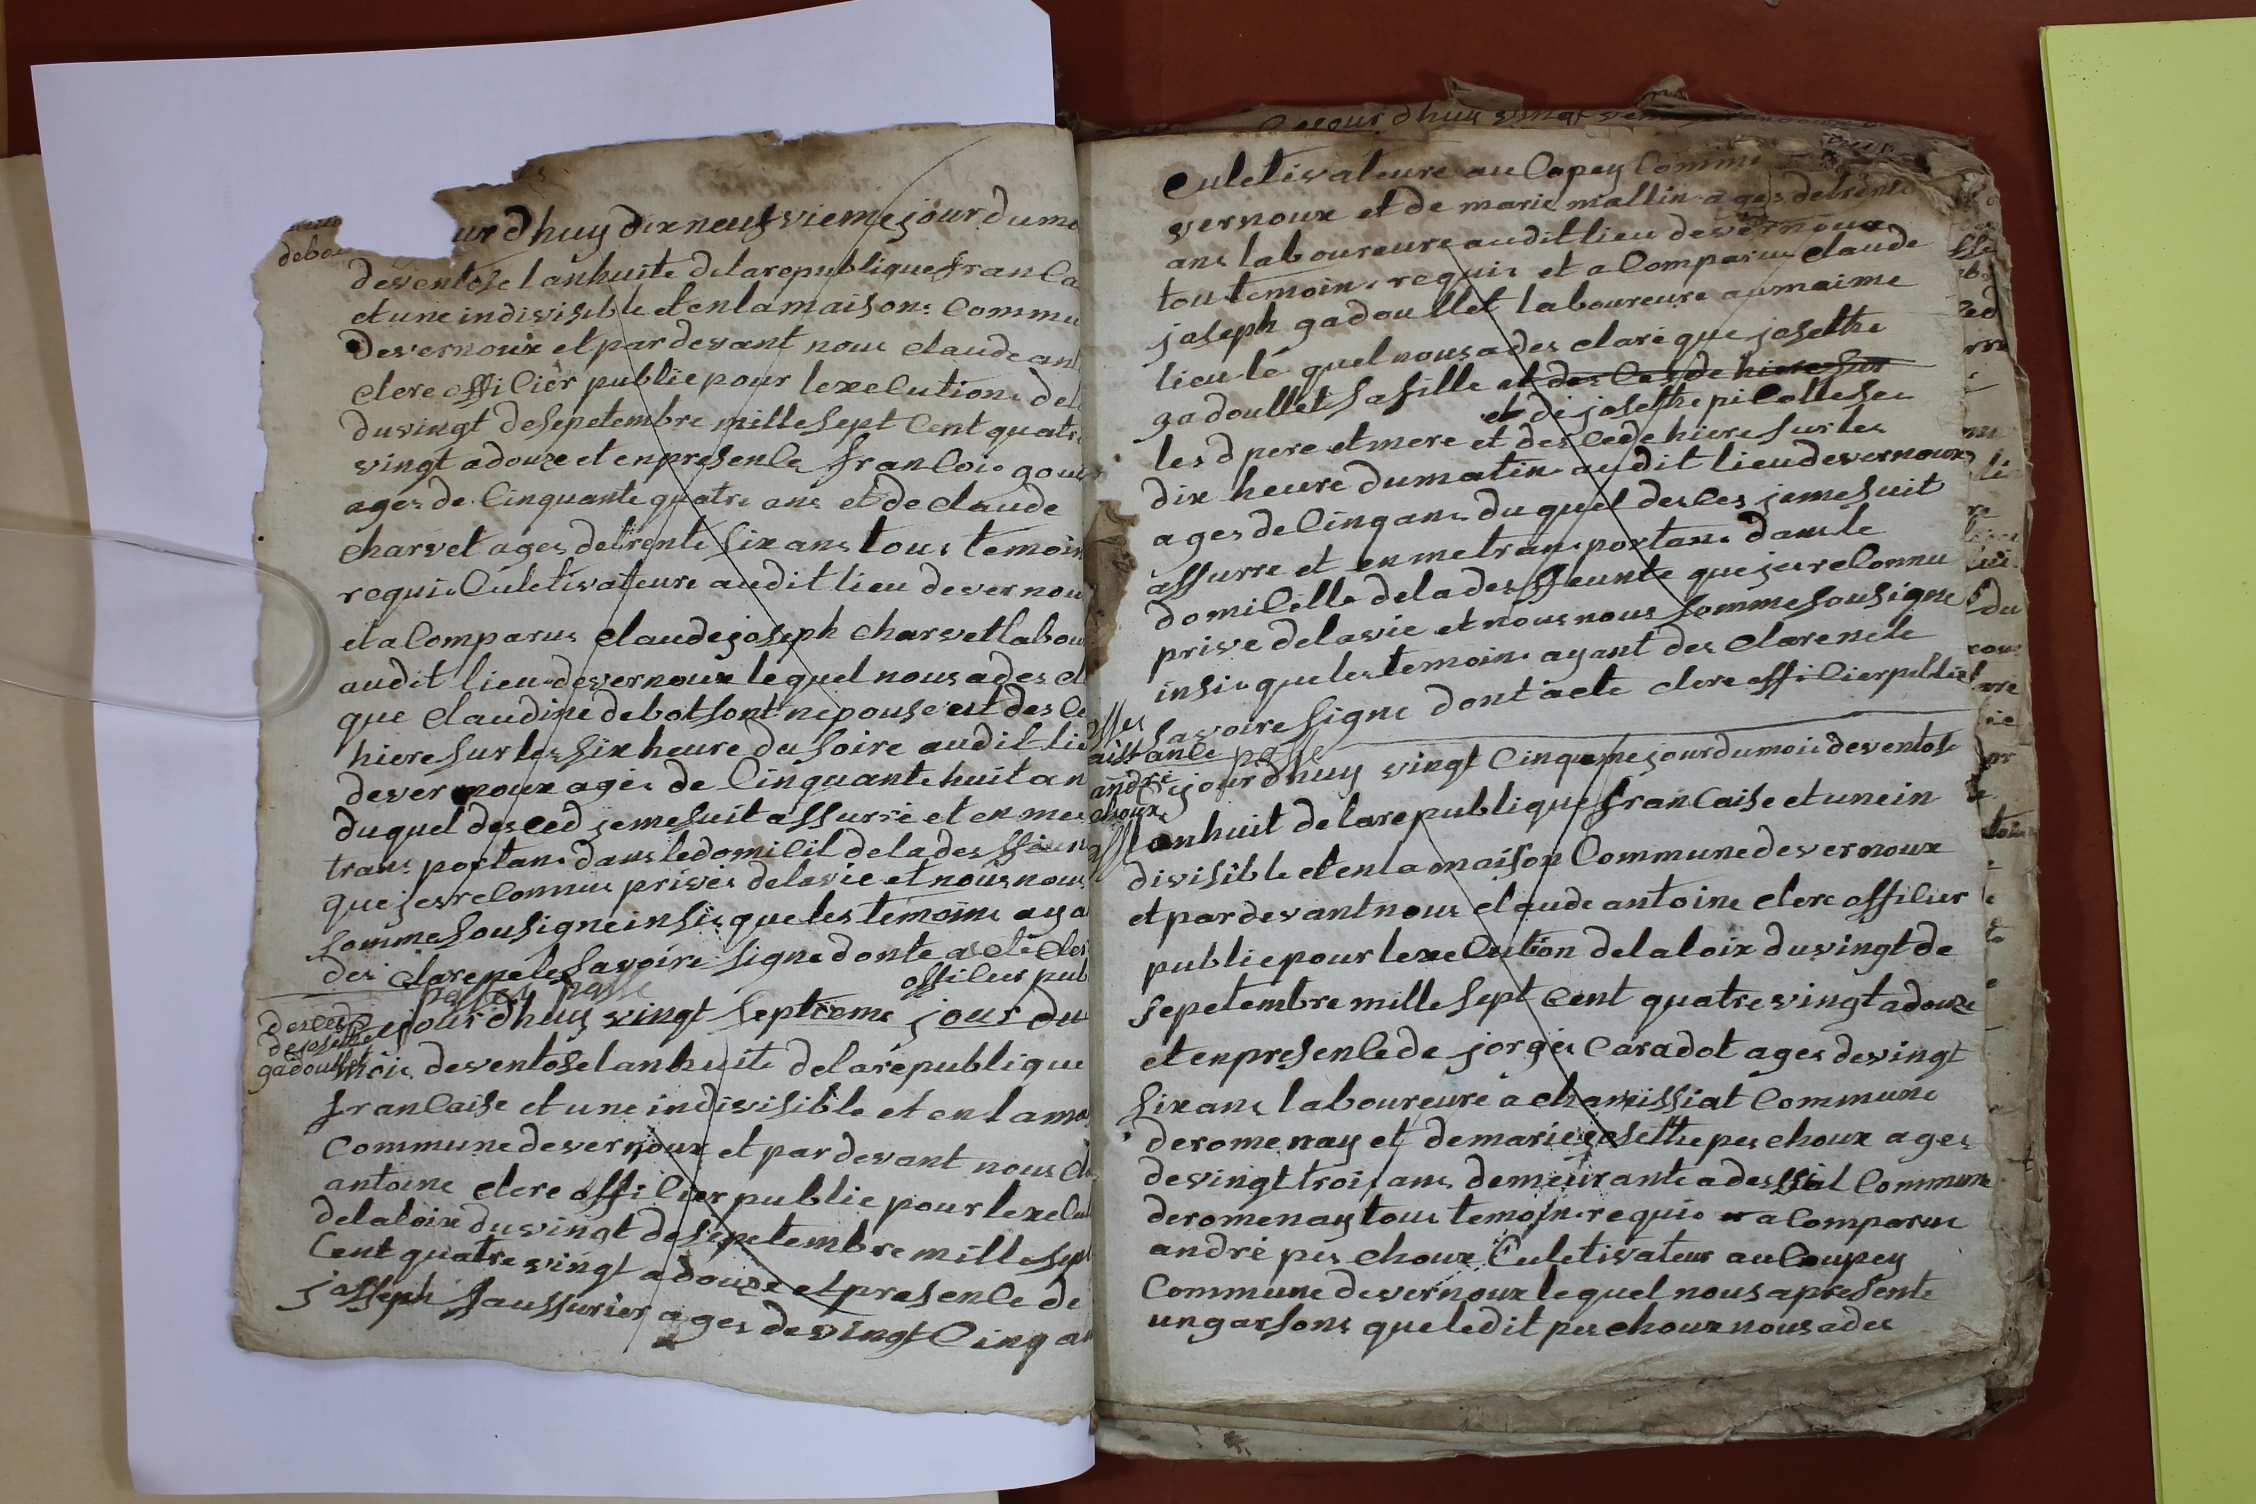 debo
urdhuy dix neufvieme jour du mo
deventose lanhuite delarepublique franca
et une indivisible et en la maisons commu
devernoux et pardevant nous claude an
clere officier publie pour lexecutions del
du vingt desepetembre mille sept cent quatre
vingt a douze et en presence francois gou
ages de cinquante quatre ans et de claude
charvet ages detrente six ans tous temoin
requis culetivateure audit lieu devernou
et a comparus claude joseph charvet labou
audit lieu devernoux lequel nous a des cl
que claudine debot font nepouse est des ce
hiere sur les six heure du soire audit lie
devernoux ages de cinquante huit an
duquel desced jeme suit assurre et en me
trans portans dans ledomicil dela des ffun
que jes reconnus prives delavie et nous nous
somme sousigne insis que les temoins aya
des clare ne le savoire signe donte acte cler
officier pub
passe passe
desces
de josette
gadoullet
cejourdhuy vingt septieme jour du
mois deventose lanhuite delarepublique
francaise et une indivisible et en lama
commune devernoux et pardevant nous cl
antoine clere officier publie pour lexecu
delaloix du vingt desepetembre mille sept
cent quatre vingt a douze et presence de
josseph faussurier ages de vingt cinq an
culetivateure au Copey comm
vernoux et de marie mallin ages detrente
ans laboureure audit lieu devernoux
tou temoins requis et a comparus claude
joseph gadoullet laboureure au maime
lieu lé quel nous a des clare que josethe
gadoullet sa fille et des ces de hiere sur
et de josethe picollesec
les d pere et mere et des cede hiere sur les
dix heure du matin audit lieu devernoux
ages de cinq ans du quel desces jeme suit
assurre et en me trans portans dans le
domicille dela des ffeunte que jes reconnu
prive delavie et nous nous somme sousigne
insis que les temoins ayant des clare ne le
savoire signe dont acte clere officier publie
passe
naissance
andre
choux
cejourdhuy vingt cinqueme jour du mois deventose
lanhuit delarepublique francaise et une in
divisible et en la maison commune devernoux
et pardevant nous claude antoine clere officier
publie pour lexecution delaloix du vingt de
sepetembre mille sept cent quatre vingt a douze
et en presence de jorges caradot ages de vingt
six ans laboureure à chamissiat commune
deromenay et de marie josethe pes choux ages
de vingt trois ans demeurante a dessiat commune
deromenay tous temoins requis a comparus
andré pes choux culetivateur au coupey
commune devernoux lequel nous a presente
un garsons que ledit pes choux nous a des